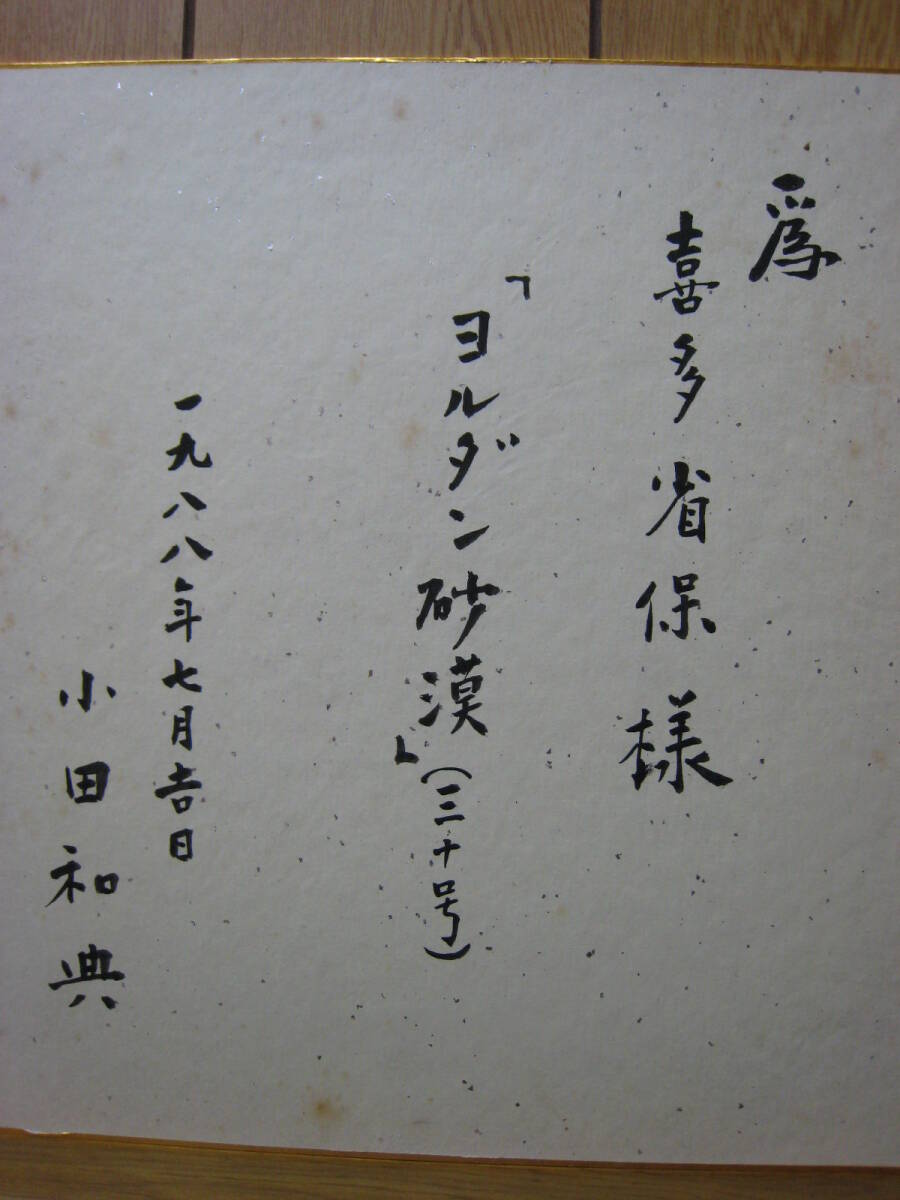 為
喜多省保様
「ヨルダン砂漠」(三十号)
一九八八年七月吉日
小田和典